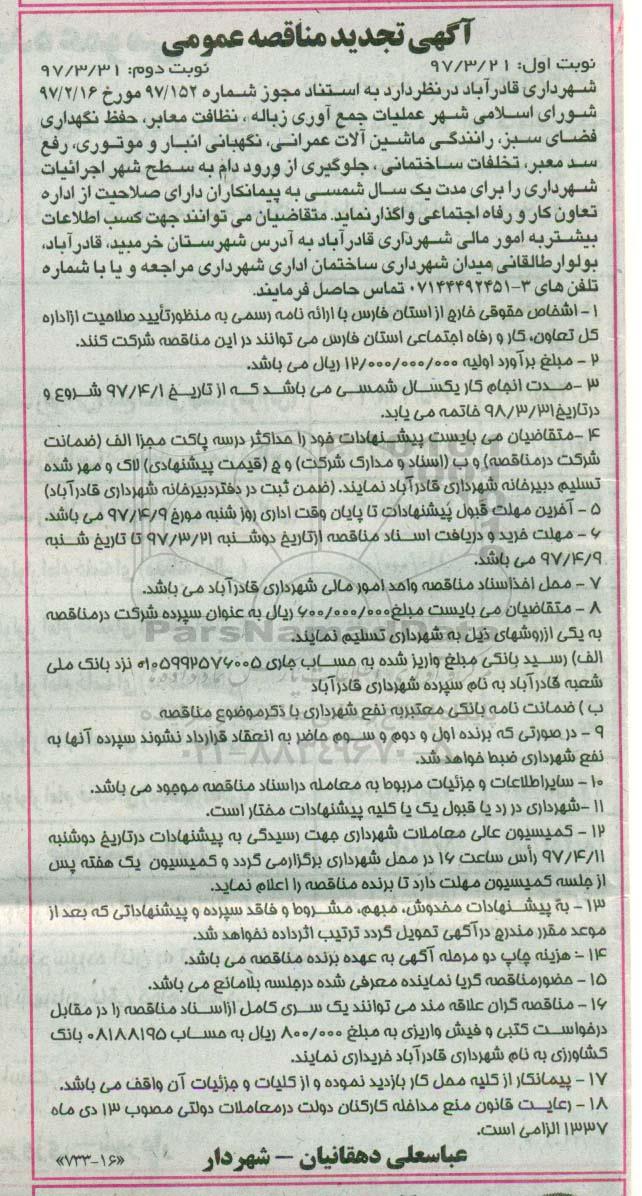 آگهی تجدید مناقصه عمومی
نوبت اول: ۹۷/۳/۲۱ نوبت دوم: ۹۷/۳/۳۱
شهرداری قادرآباد درنظردارد به استناد مجوز شماره ۹۷/۱۵۲ مورخ ۹۷/۲/۱۶
شورای اسلامی شهر عملیات جمع آوری زباله ، نظافت معابر، حفظ نگهداری
فضای سبز، رانندگی ماشین آلات عمرانی، نگهبانی انبار و موتوری، رفع
سد معبر، تخلفات ساختمانی ، جلوگیری از ورود دام به سطح شهر اجرائیات
شهرداری را برای مدت یک سال شمسی به پیمانکاران دارای صلاحیت از اداره
تعاون کار و رفاه اجتماعی واگذارنماید. متقاضیان می توانند جهت کسب اطلاعات
بیشتربه امور مالی شهرداری قادرآباد به آدرس شهرستان خرمبید، قادرآباد،
بولوارطالقانی میدان شهرداری ساختمان اداری شهرداری مراجعه و یا با شماره
تلفن های ۳-۰۷۱۴۴۴۹۲۴۵۱ تماس حاصل فرمایند.
۱- اشخاص حقوقی خارج از استان فارس با ارائه نامه رسمی به منظورتأیید صلاحیت ازاداره
کل تعاون، کار و رفاه اجتماعی استان فارس می توانند در این مناقصه شرکت کنند.
۲- مبلغ برآورد اولیه ۱۲/۰۰۰/۰۰۰/۰۰۰ ریال می باشد.
۳-مدت انجام کار یکسال شمسی می باشد که از تاریخ ۹۷/۴/۱ شروع و
درتاریخ۹۸/۳/۳۱ خاتمه می یابد.
۴-متقاضیان می بایست پیشنهادات خود را حداکثر درسه پاکت مجزا الف (ضمانت
شرکت درمناقصه) و ب (اسناد و مدارک شرکت) و ج (قیمت پیشنهادی) لاک و مهر شده
تسلیم دبیرخانه شهرداری قادرآباد نمایند. (ضمن ثبت در دفتردبیرخانه شهرداری قادرآباد)
۵- آخرین مهلت قبول پیشنهادات تا پایان وقت اداری روز شنبه مورخ ۹۷/۴/۹ می باشد.
۶- مهلت خرید و دریافت اسناد مناقصه ازتاریخ دوشنبه ۹۷/۳/۲۱ تا تاریخ شنبه
۹۷/۴/۹ می باشد.
۷- محل اخذاسناد مناقصه واحد امور مالی شهرداری قادرآباد می باشد.
۸- متقاضیان می بایست مبلغ۶۰۰/۰۰۰/۰۰۰ ریال به عنوان سپرده شرکت درمناقصه
به یکی ازروشهای ذیل به شهرداری تسلیم نمایند.
الف) رسید بانکی مبلغ واریز شده به حساب جاری ۰۱۰۵۹۹۲۵۷۶۰۰۵ نزد بانک ملی
شعبه قادرآباد به نام سپرده شهرداری قادرآباد
ب ) ضمانت نامه بانکی معتبربه نفع شهرداری با ذکرموضوع مناقصه
۹- در صورتی که برنده اول و دوم و سوم حاضر به انعقاد قرارداد نشوند سپرده آنها به
نفع شهرداری ضبط خواهد شد.
۱۰- سایراطلاعات و جزئیات مربوط به معامله دراسناد مناقصه موجود می باشد.
۱۱-شهرداری در رد یا قبول یک یا کلیه پیشنهادات مختار است.
۱۲- کمیسیون عالی معاملات شهرداری جهت رسیدگی به پیشنهادات درتاریخ دوشنبه
۹۷/۴/۱۱ رأس ساعت ۱۶ در محل شهرداری برگزارمی گردد و کمیسیون یک هفته پس
از جلسه کمیسیون مهلت دارد تا برنده مناقصه را اعلام نماید.
۱۳- به پیشنهادات مخدوش، مبهم، مشروط و فاقد سپرده و پیشنهاداتی که بعد از
موعد مقرر مندرج درآگهی تحویل گردد ترتیب اثرداده نخواهد شد.
۱۴- هزینه چاپ دو مرحله آگهی به عهده برنده مناقصه می باشد.
۱۵- حضورمناقصه گریا نماینده معرفی شده درجلسه بلامانع می باشد.
۱۶- مناقصه گران علاقه مند می توانند یک سری کامل ازاسناد مناقصه را در مقابل
درخواست کتبی و فیش واریزی به مبلغ ۸۰۰/۰۰۰ ریال به حساب ۰۸۱۸۸۱۹۵ بانک
کشاورزی به نام شهرداری قادرآباد خریداری نمایند.
۱۷- پیمانکار از کلیه محل کار بازدید نموده و از کلیات و جزئیات آن واقف می باشد.
۱۸- رعایت قانون منع مداخله کارکنان دولت درمعاملات دولتی مصوب ۱۳ دی ماه
۱۳۳۷ الزامی است.
عباسعلی دهقانیان – شهردار «۷۳۳-۱۶»
ParsNamadData
۰۲۱-۸۸۳۴۹۶۷۰-۵